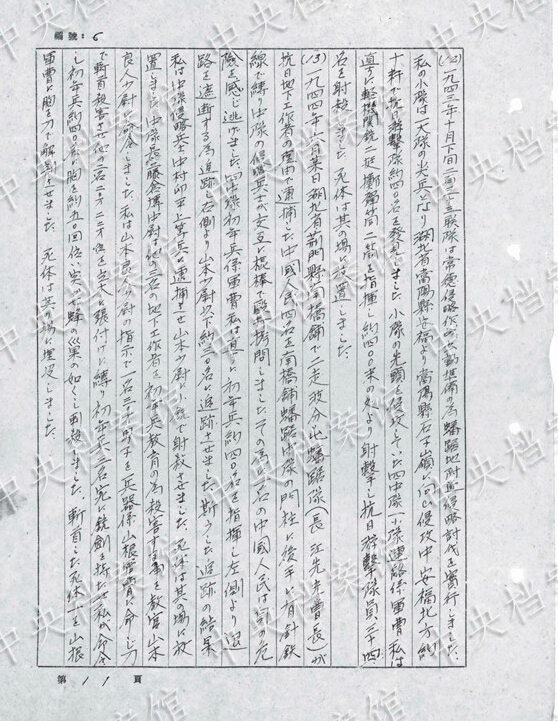 編號：6
(12) 一九四三年十月下旬二三二聯隊は常德侵略作戦出動準備の為蟠踞地附近侵略討伐を實行しました。
私の小隊は一大隊の尖兵となり湖北省當陽縣安福より當陽縣石子嶺に向ひ侵攻中安福北方約
十粁で抗日游擊隊約四〇名を発見しました 小隊の先頭を侵攻していた四中隊一小隊連絡係軍曹 私は
直ちに軽機関銃二挺 擲弾筒二筒を指揮し約四〇〇米の処より射撃し抗日游擊隊員二十四
名を射殺しました 死体は其の場に放置しました。
(13) 一九四四年六月某日湖北省荊門縣南橋舗で 蟠踞隊（長 江先 曹長）が
抗日地下工作者の理由で逮捕した中國人民四名を南橋舗蟠踞中隊の門柱に後手に有針鉄
線で縛り中隊の侵略兵士が交互に棍棒で殴打拷問しました その為 一名の中國人民は 危
険を感じ逃げました 四中隊初年兵係軍曹私は直ちに初年兵約四〇名を指揮し左側より退
路を遮断する為追跡し右側より山本少尉以下約三〇名に追跡させました 斯うした追跡の結果
私は中隊侵略兵士中村 上等兵に逮捕させ山本少尉に 射殺させました。死体は其の場に放
置しました 中隊長 中尉は他三名の地下工作者を初年兵教育の為殺害する事を教官山本
良人少尉に命令しました。私は山本良人少尉の指示で一名三十 男子を兵器係山根 曹に命じ刀
で斬首殺害させ他の二名 を立木に張付けに縛り初年兵 名宛に銃劍を持たせ私が命令
し初年兵約四〇名に胸を約九〇回位 突 蜂の巢の如くし刺殺しました。斬首した死体 を山根
軍曹に胸を刀で解剖させました。死体は其の場に埋没しました。
第 11 頁
中央档案馆